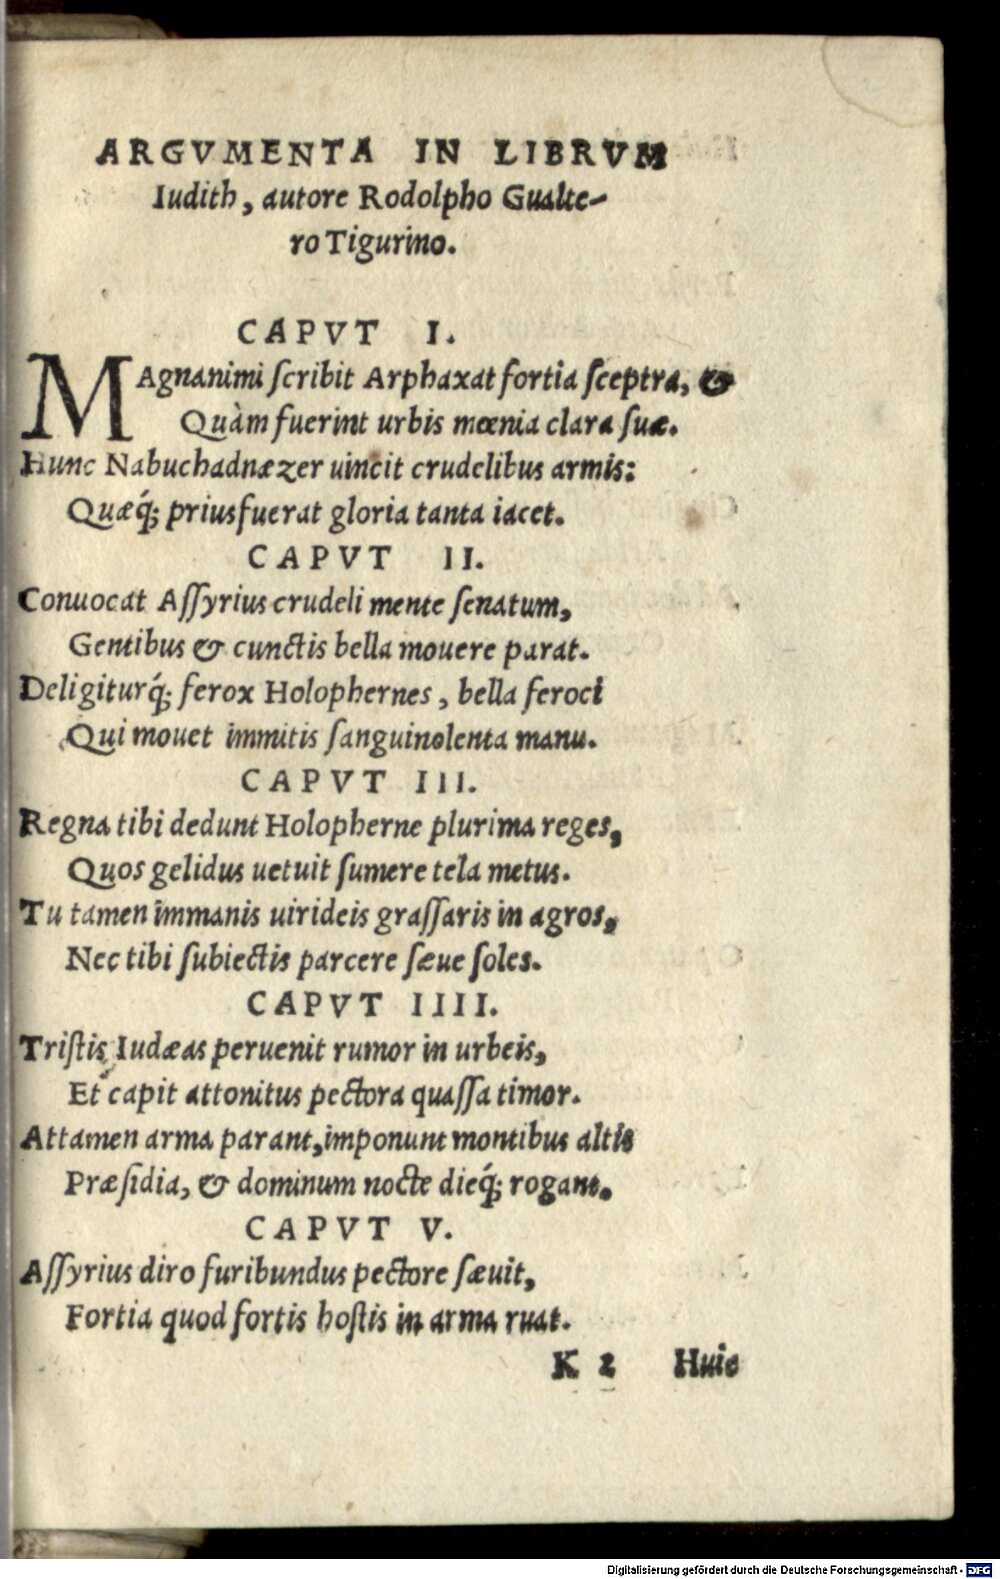 ARGVMENTA IN LIBRVM
Iudith, autore Rodolpho Gualte-
ro Tigurino.
CAPVT I.
MAgnanimi ſcribit Arphaxat fortia ſceptra, &
Quàm fuerint urbis mœnia clara ſuæ.
Hunc Nabuchadnæzer uincit crudelibus armis:
Quæq́; prius fuerat gloria tanta iacet.
CAPVT II.
Conuocat Aſſyrius crudeli mente ſenatum,
Gentibus & cunctis bella mouere parat.
Deligiturq́; ferox Holophernes, bella feroci
Qui mouet immitis ſanguinolenta manu.
CAPVT III.
Regna tibi dedunt Holopherne plurima reges,
Quos gelidus uetuit ſumere tela metus.
Tu tamen immanis uirideis graſſaris in agros,
Nec tibi ſubiectis parcere ſæue ſoles.
CAPVT IIII.
Triſtis Iudæas peruenit rumor in urbeis,
Et capit attonitus pectora quaſſa timor.
Attamen arma parant, imponunt montibus altis
Præſidia, & dominum nocte dieq́; rogant.
CAPVT V.
Aſſyrius diro furibundus pectore ſæuit,
Fortia quod fortis hoſtis in arma ruat.
K 2 Huic
Digitalisierung gefördert durch die Deutsche Forschungsgemeinschaft - DFG